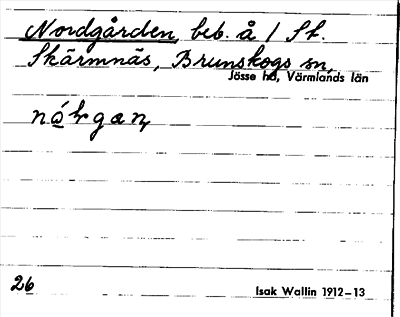 Nordgården, beb. å 1 St.
Skärmnäs, Brunskogs sn,
Jösse hd, Värmlands län
26
Isak Wallin 1912–13